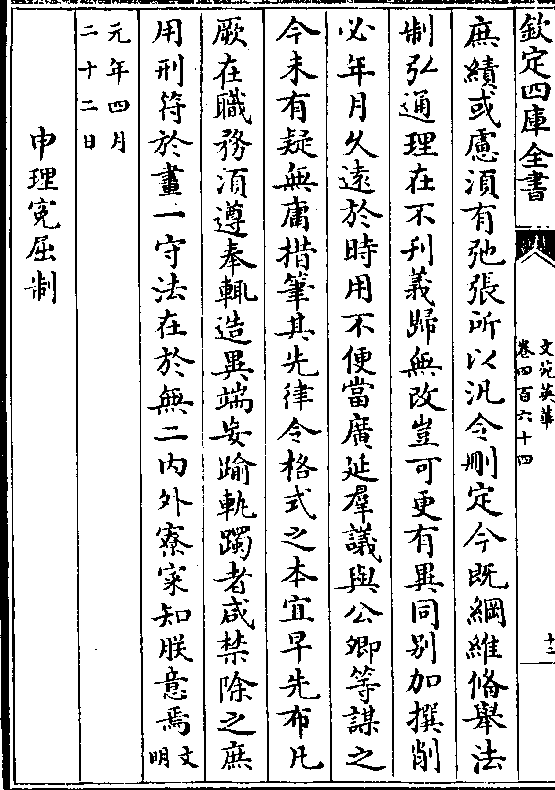 欽定四庫全書
文苑英華
卷四百六十四
十二
庶績或慮湏有弛張所以汎令刪定今既綱維俻舉法
制弘通理在不刋義歸無改豈可更有異同别加撰削
必年月久逺於時用不便當廣延羣議與公卿等謀之
今未有疑無庸措筆其先律令格式之本宜早先布凡
厥在職務湏遵奉輒造異端妄踰軌躅者咸禁除之庶
用刑符於畫一守法在於無二内外寮寀知朕意焉文明
元年四月
二十二日
申理寃屈制